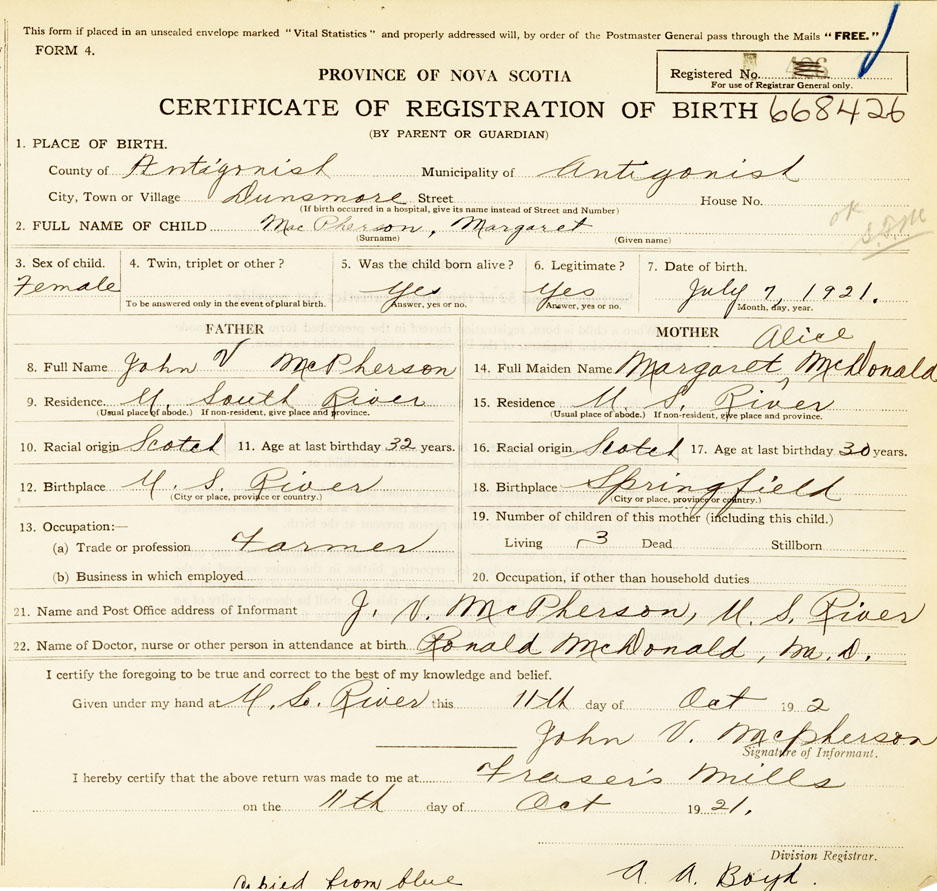 This form if placed in an unsealed envelope marked "Vital Statistics" and properly addressed will, by order of the Postmaster General pass through the Mails "FREE."
FORM 4.
Registered No.
For use of Registrar General only.
PROVINCE OF NOVA SCOTIA
CERTIFICATE OF REGISTRATION OF BIRTH 668426
(BY PARENT OR GUARDIAN)
1. PLACE OF BIRTH.
County of Antigonish Municipality of Antigonish
City, Town or Village Dunsmore Street House No.
(If birth occurred in a hospital, give its name instead of Street and Number)
2. FULL NAME OF CHILD Mac Pherson, Margaret
(Surname) (Given name)
OK
3. Sex of child. 4. Twin, triplet or other? 5. Was the child born alive? 6. Legitimate? 7. Date of birth.
Female Yes Yes July 7, 1921.
To be answered only in the event of plural birth. Answer, yes or no. Answer, yes or no. Month, day, year.
FATHER MOTHER
Alice
8. Full Name John V McPherson 14. Full Maiden Name Margaret ^ McDonald
9. Residence U. South River 15. Residence U. S. River
(Usual place of abode.) If non-resident, give place and province. (Usual place of abode.) If non-resident, give place and province.
10. Racial origin Scotch 11. Age at last birthday 32 years. 16. Racial origin Scotch 17. Age at last birthday 30 years.
12. Birthplace U. S. River 18. Birthplace Springfield
(City or place, province or country.) (City or place, province or country.)
13. Occupation:— 19. Number of children of this mother (including this child.)
(a) Trade or profession Farmer Living 3 Dead Stillborn
(b) Business in which employed 20. Occupation, if other than household duties
21. Name and Post Office address of Informant J. V. McPherson, U. S. River
22. Name of Doctor, nurse or other person in attendance at birth Ronald McDonald, M.D.
I certify the foregoing to be true and correct to the best of my knowledge and belief.
Given under my hand at U. So. River this 11th day of Oct 192 2
John V. McPherson
Signature of Informant.
I hereby certify that the above return was made to me at Fraser's Mills
on the 11th day of Oct 19 21.
Division Registrar.
Copied from blue A. A. Boyd.